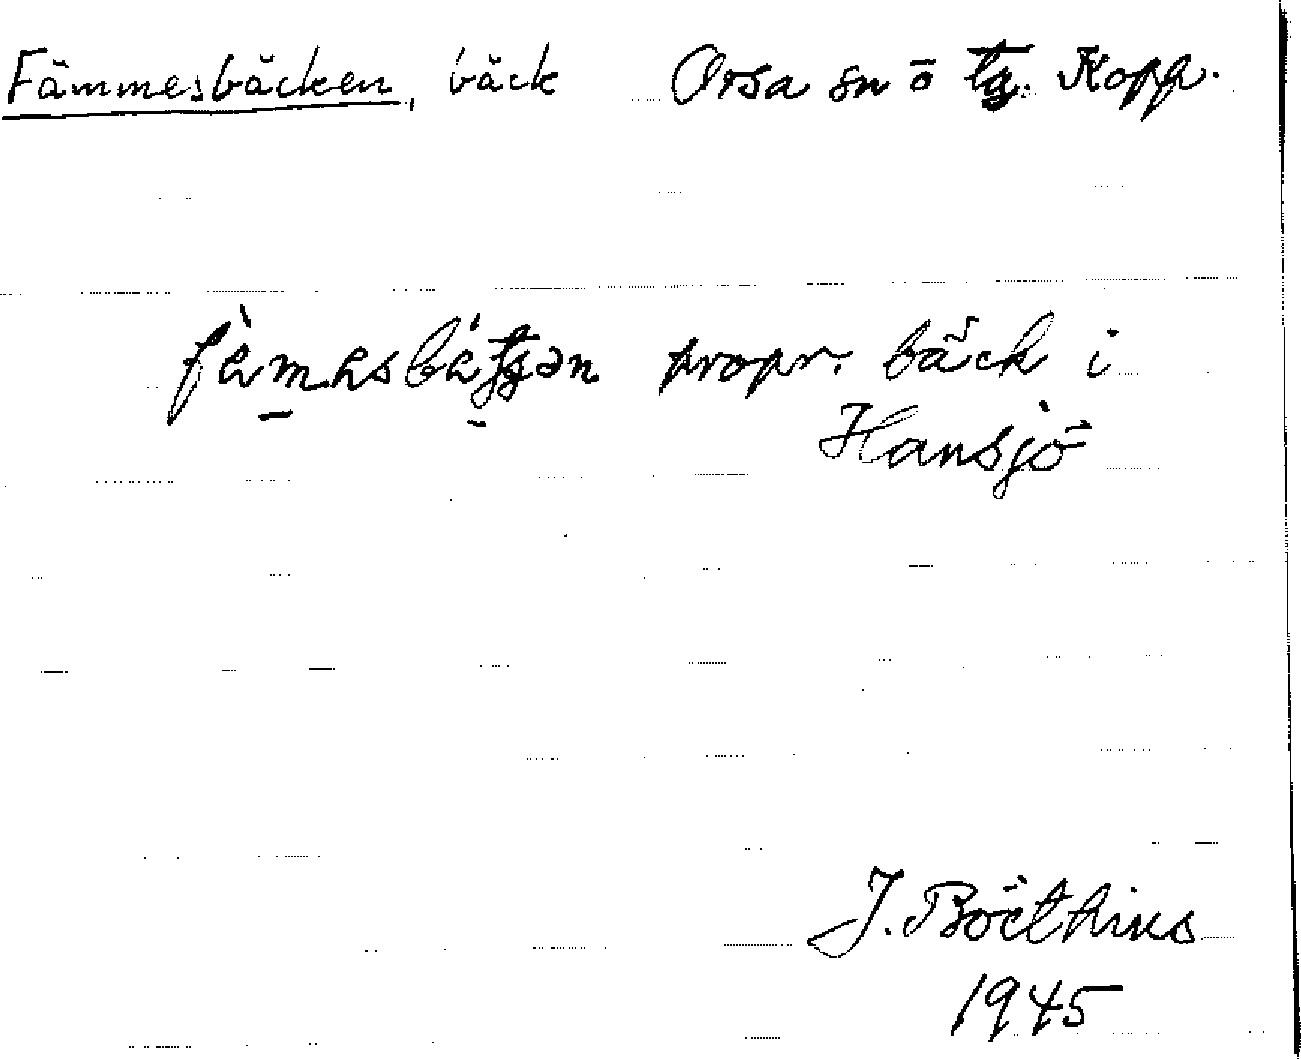 Fämmesbäcken, bäck Orsa sn ö tg. Kopp.
fämäsbätjən propr. bäck i
Hansjö
J. Boëthius
1945